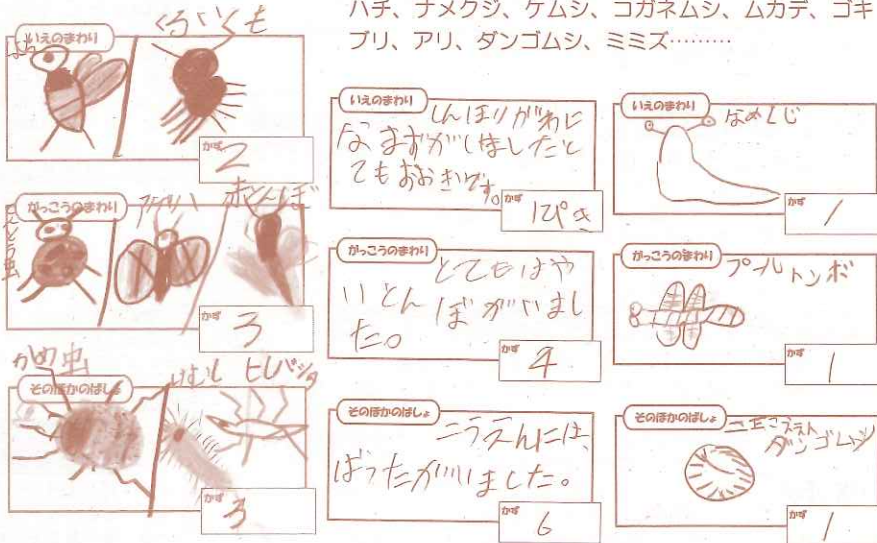 ハチ、ナメクジ、ケムシ、コガネムシ、ムカデ、ゴキ
ブリ、アリ、ダンゴムシ、ミミズ………
はち
いえのまわり
くろいくも
かず
2
てんとう虫
がっこうのまわり
アゲハ
赤とんぼ
かず
3
かめ虫
そのほかのばしょ
けむし
かず
3
いえのまわり
しんほりがわに
なまずがいましたと
てもおおきいです。
かず
1ぴき
がっこうのまわり
とてもはや
いとんぼがいまし
た。
かず
4
そのほかのばしょ
こうえんには、
ばったがいました。
かず
6
いえのまわり
なめくじ
かず
1
がっこうのまわり
プールトンボ
かず
1
そのほかのばしょ
ダンゴムシ
かず
1